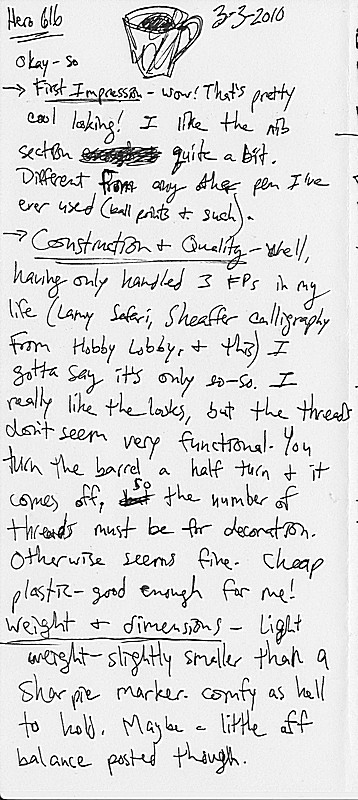 Hero 616
3-3-2010
Okay - so
→ First Impression - wow! That's pretty
cool looking! I like the nib
section quite a bit.
Different from any other pen I've
ever used (ball points & such).
→ Construction & Quality - Well,
having only handled 3 FPs in my
life (Lamy Safari, Sheaffer calligraphy
from Hobby Lobby, & this) I
gotta say it's only so-so. I
really like the looks, but the threads
don't seem very functional. You
turn the barrel a half turn & it
comes off, so the number of
threads must be for decoration.
Otherwise seems fine. Cheap
plastic - good enough for me!
Weight & dimensions - Light
weight - slightly smaller than a
Sharpie marker. comfy as hell
to hold. Maybe a little off
balance posted though.